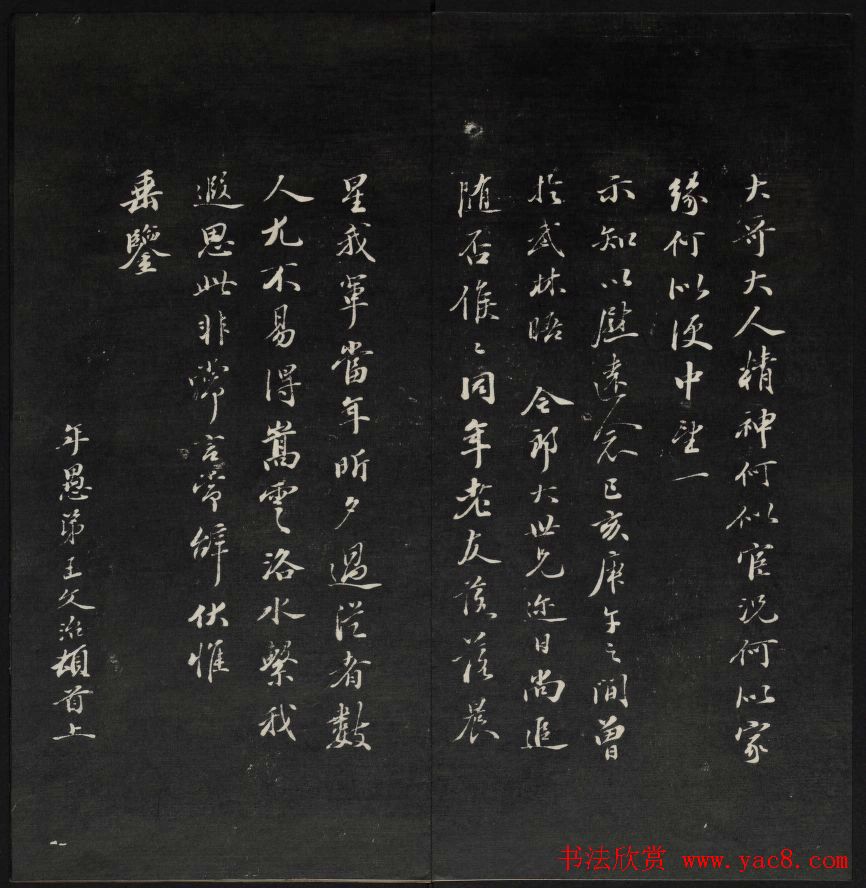 大哥大人精神何似官况何似家
缘何似便中望一
示知以慰遠念己亥庚子之間曾
於武林晤 令郎大世兄近日尚追
随否候〻同年老友落落晨
星我軍當年昕夕過従者數
人尤不易得嵩雲洛水繫我
遐思此非常言常辭伏惟
垂鑒
年愚弟王文治頓首上
书法欣赏 www.yac8.com